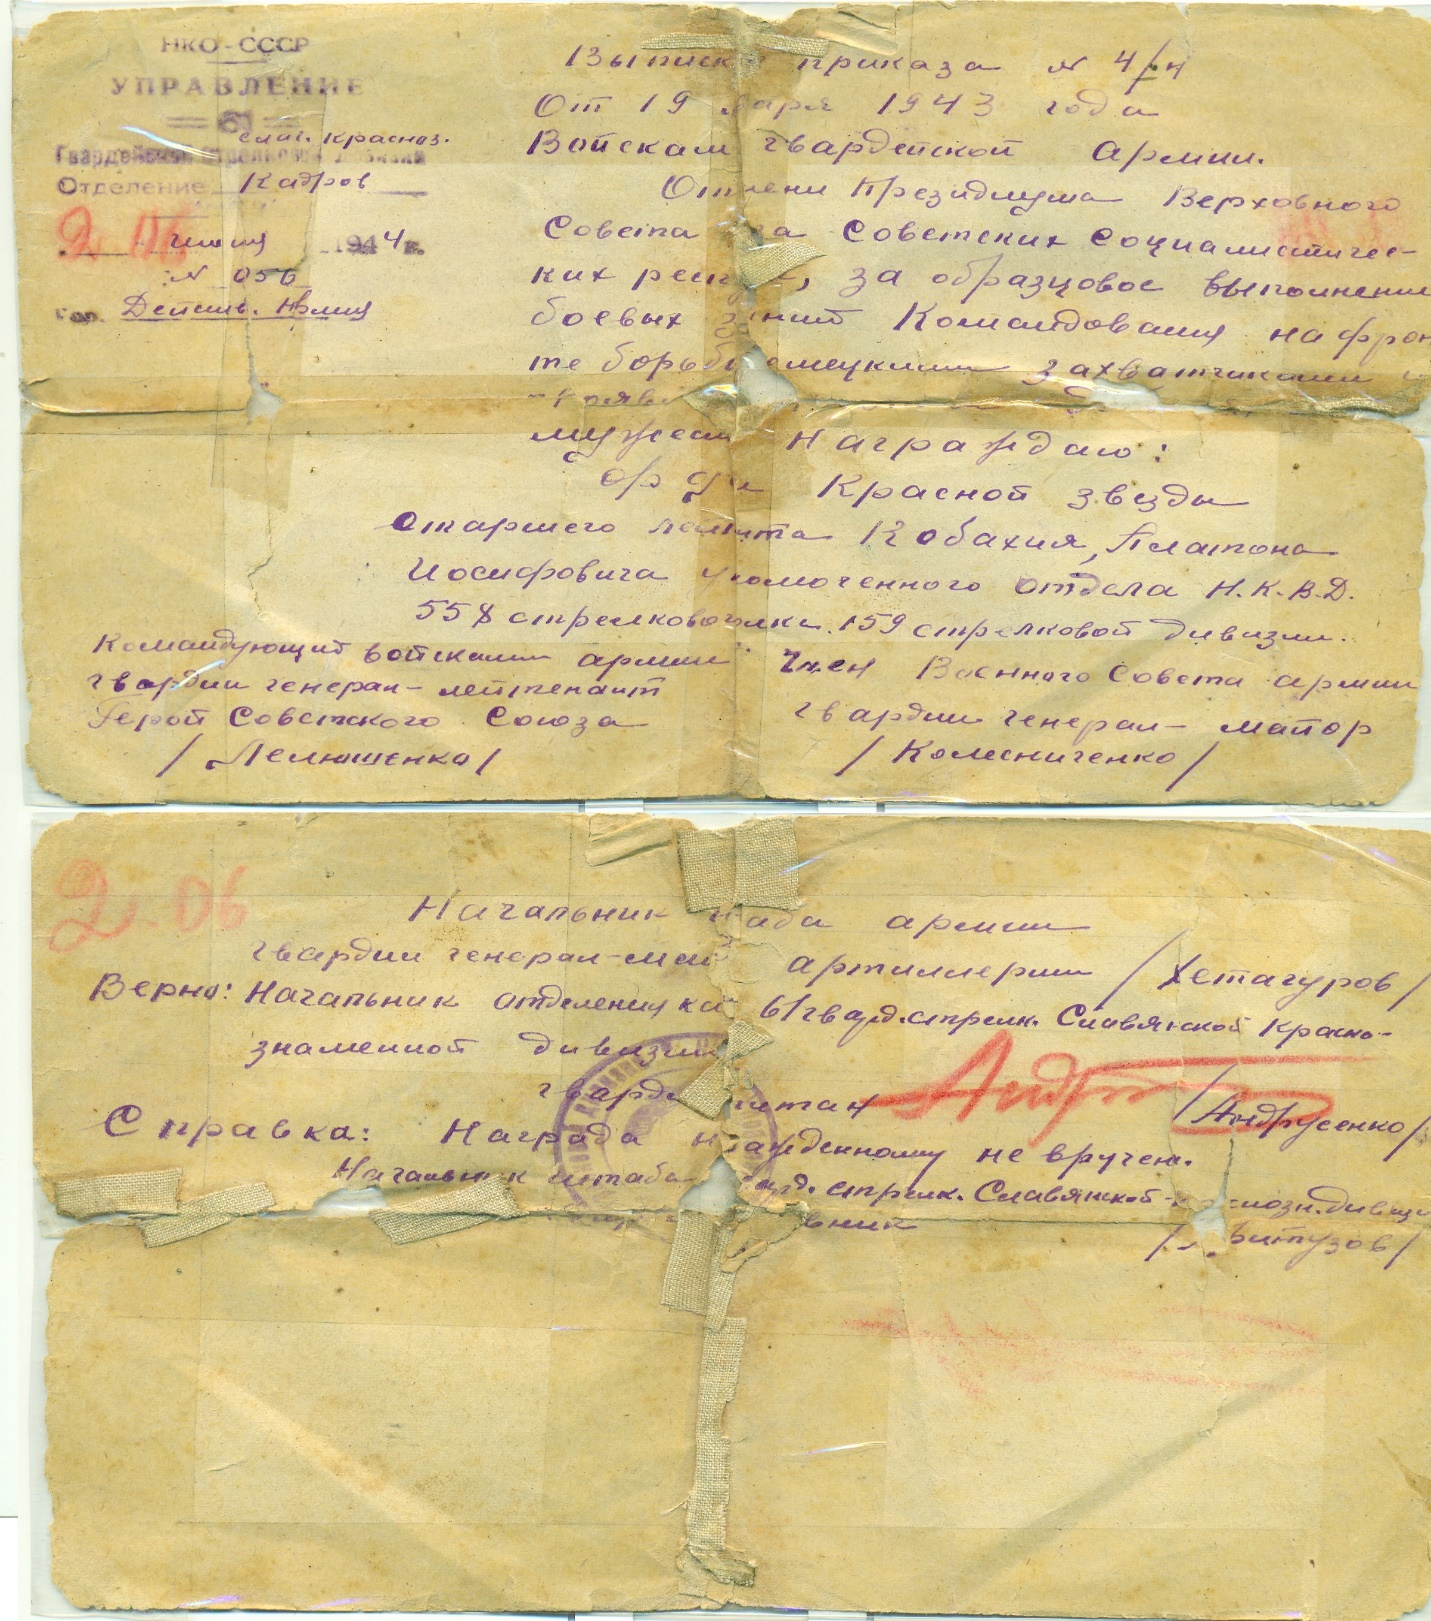 НКО-СССР
УПРАВЛЕНИЕ
61
слав. красноз.
Гвардейской стрелковой дивизии
Отделение Кадров
2 июня 1944 г.
N 056
гор. Действ. Армия
Выписк приказа N 4/н
От 19 варя 1943 года
Войскам гвардейской Армии.
От имени Президиума Верховного
Совета за Советских Социалистичес-
ких респ, за образцовое выполнение
боевых аний Командования на фрон
те борьбы емецкими захватчиками и
прояв
мужест Награждаю:
орде Красной звезды
старшего лейта Кобахия, Платона
Иосифовича уномоченного отдела Н.К.В.Д.
558 стрелкового лка 159 стрелковой дивизии.
Командующий войсками армии
гвардии генерал-лейтенант
Герой Советского Союза
/Лелюшенко/
Член Военного Совета армии
гвардии генерал-майор
/Колесниченко/
2.06
Начальник таба армии
гвардии генерал-май артиллерии /Хетагуров/
Верно: Начальник отделения ка 61 гвард. стрелк. Славянской Красно-
знаменной дивизии
гварди питан /Андрусенко/
Справка: Награда нгражденному не вручен.
Начальник штаба ард. стрелк. Славянской- снозн. дивизи
вник